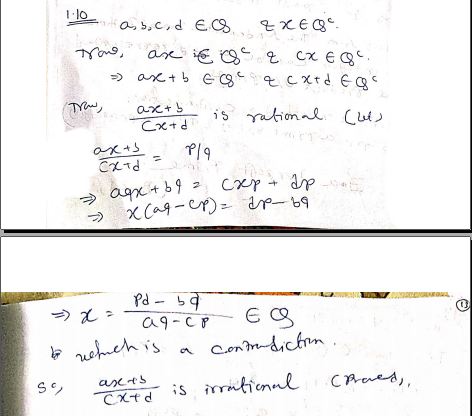 1.10 a, b, c, d ∈ Q & x ∈ Qᶜ.
Then, ax ∈ Qᶜ & cx ∈ Qᶜ.
⇒ ax+b ∈ Qᶜ & cx+d ∈ Qᶜ
Then, (ax+b)/(cx+d) is rational (let)
(ax+b)/(cx+d) = p/q
⇒ aqx + bq = cxp + dp
⇒ x(aq-cp) = dp-bq
⇒ x = (pd-bq)/(aq-cp) ∈ Q
13
which is a contradiction.
So, (ax+b)/(cx+d) is irrational (Proved),